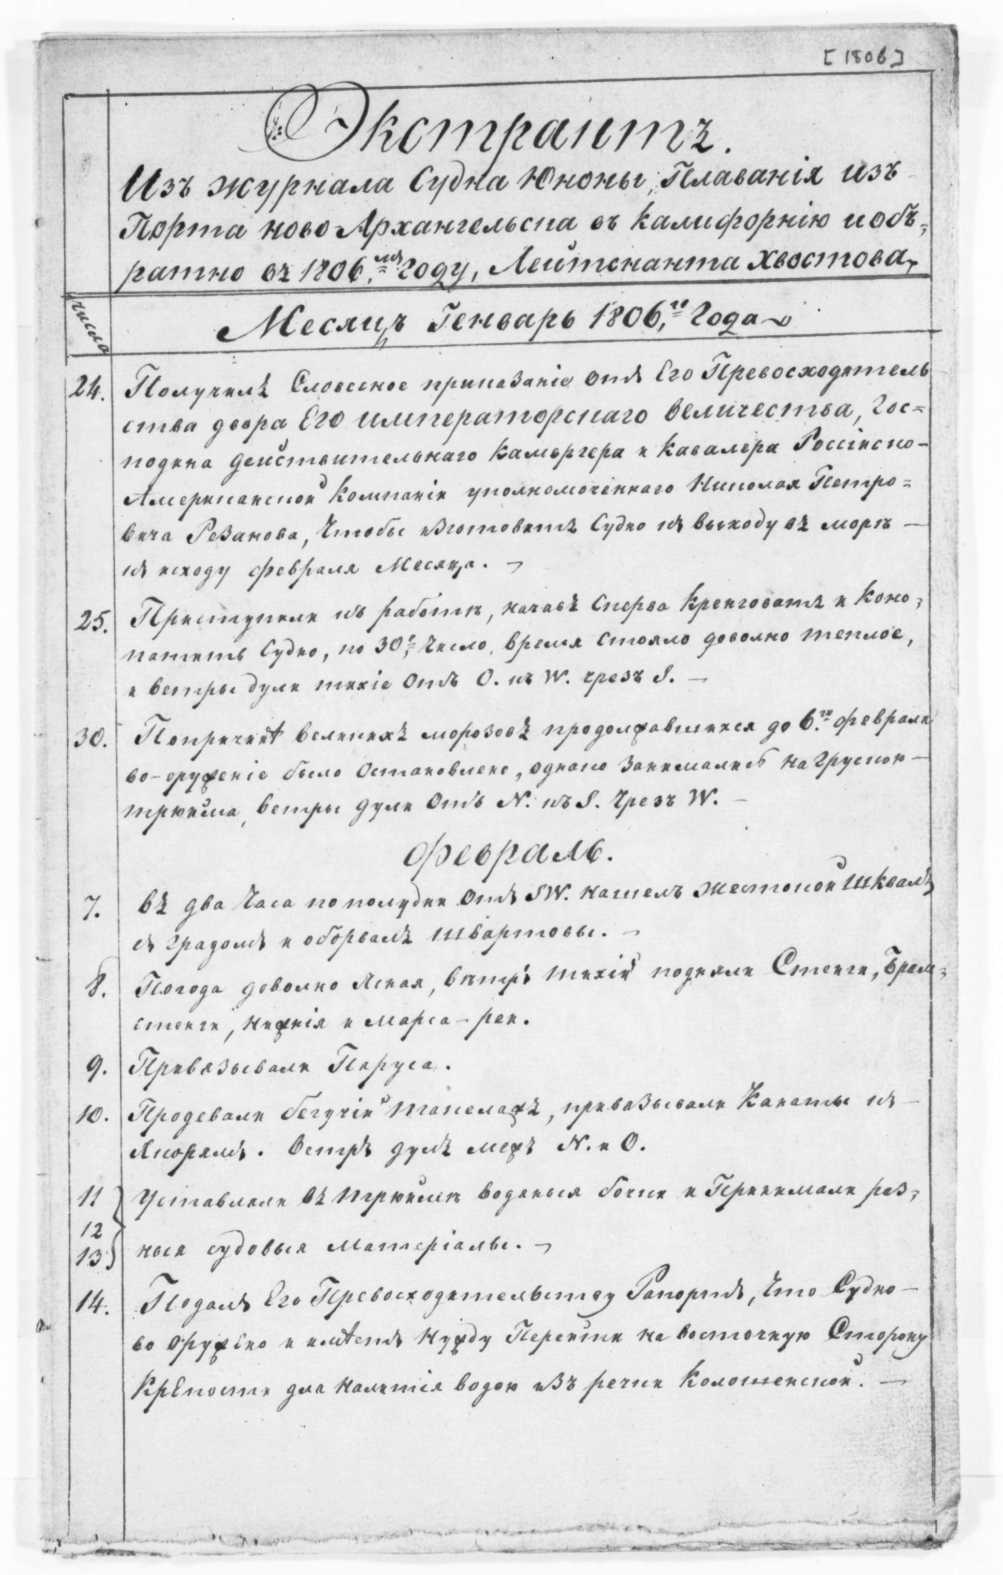 [1806]
Экстрактъ.
Изъ журнала Судна Юноны, Плаванія изъ
Порта ново Архангельска въ Калифорнію и объ-
ратно въ 1806.мъ Году, Лейтенанта Хвостова,
числа
Месяцъ Генварь 1806,го Года
24. Получилъ Словесное приказаніе отъ Его Превосходитель
ства двора Его императорскаго величества, Гос=
подина действительнаго Камергера и Кавалера Россійско-
Американской Компаніи уполномоченнаго Николая Петро=
вича Резанова, Чтобы изготовить Судно къ выходу въ море —
къ исходу февраля Месяца.
25. Приступили къ работе, начавъ Сперва Кренговать и Коно,
патить Судно, по 30е Число, время стояло довольно теплое,
и ветры дули тихіе отъ O. къ W. чрезъ S. —
30. Попричинѣ великихъ морозовъ продолжавшихся до 6.го февраля
во-оруженіе было остановлено, однако занимались Нагрузкой —
трюйма, ветры дули отъ N. къ S. Чрезъ W. —
февраль.
7. въ два Часа по полудни отъ SW. нашелъ жестокой Шквалъ
съ градомъ и оборвалъ Швартовы. —
8. Погода довольно Ясная, вѣтръ тихій подняли Стенги, Брам,
стенги, нижнія и Марса-реи.
9. Привязывали Паруса.
10. Продевали бегучій такелажъ, привязывали Канаты къ —
Якорямъ. Ветръ дулъ межъ N. и O.
11 Уставляли въ трюймѣ водяныя бочки и Принимали раз,
12
13 ныя судовыя матеріалы.
14. Подалъ Его Превосходительству Рапортъ, Что Судно —
во оружено и имѣетъ нужду Перейти на восточную Сторону
Крѣпости для налитія водою изъ речки Колошенской. —